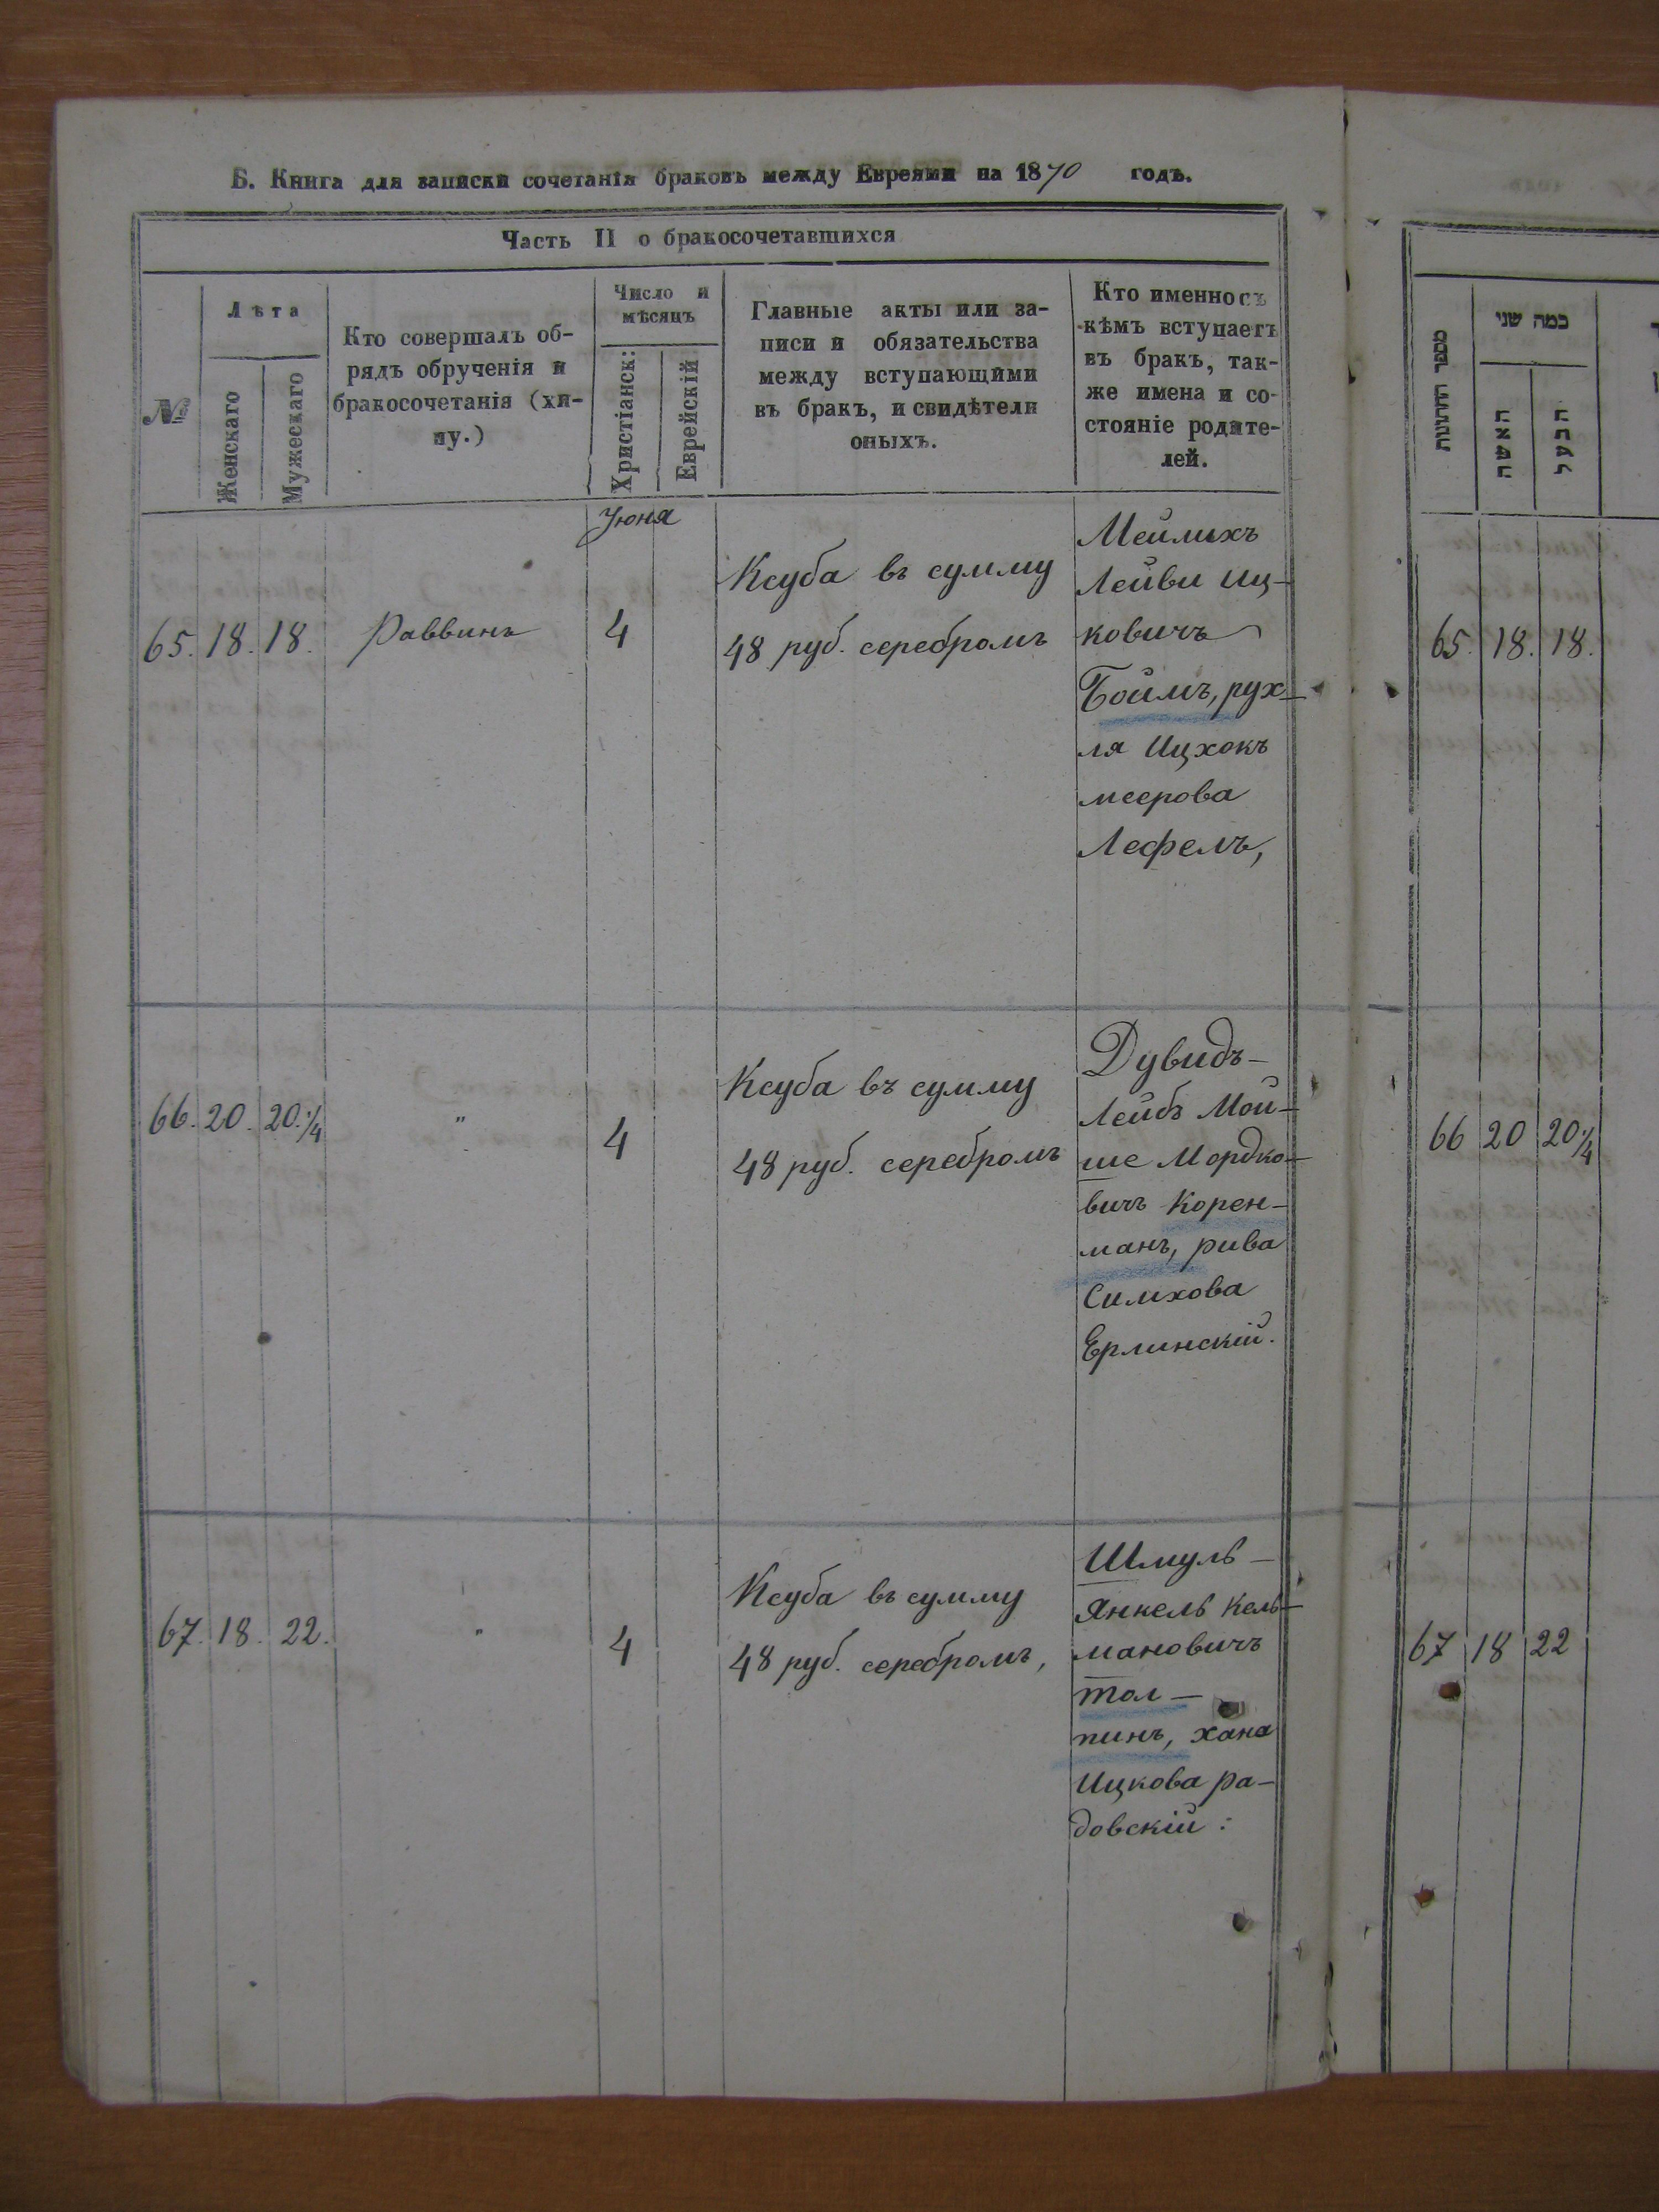 Б. Книга для записки сочетанія браковъ между Евреями на 1870 годъ.
Часть II о бракосочетавшихся
№
Лѣта
Женскаго
Мужескаго
Кто совершалъ об-
рядъ обрученія и
бракосочетанія (хи-
пу.)
Число и
мѣсяцъ
Христіанск:
Еврейскій
Главные акты или за-
писи и обязательства
между вступающими
въ бракъ, и свидѣтели
оныхъ.
Кто именно съ
кѣмъ вступаетъ
въ бракъ, так-
же имена и со-
стояніе родите-
лей.
Іюня
65. 18. 18. Раввинъ 4
Ксуба въ сумму
48 руб. серебромъ
Меилихъ
Лейви Иц-
ковичъ
Боймъ, рух-
ля Ицхокъ
меерова
Лефелъ,
66. 20. 20.1/4 " 4
Ксуба въ сумму
48 руб. серебромъ
Дувидъ-
Лейбъ Мой-
ше Мордко-
вичъ Корен-
манъ, рива
Симхова
Ерлинскій.
67. 18. 22. " 4
Ксуба въ сумму
48 руб. серебромъ,
Шмуль-
Янкель Кель-
мановичъ
тол-
пинъ, хана
Ицкова ра-
довскій:
מספר החתונות
כמה שני
האשה
הבעל
65. 18. 18.
66 20 20.1/4
67 18 22